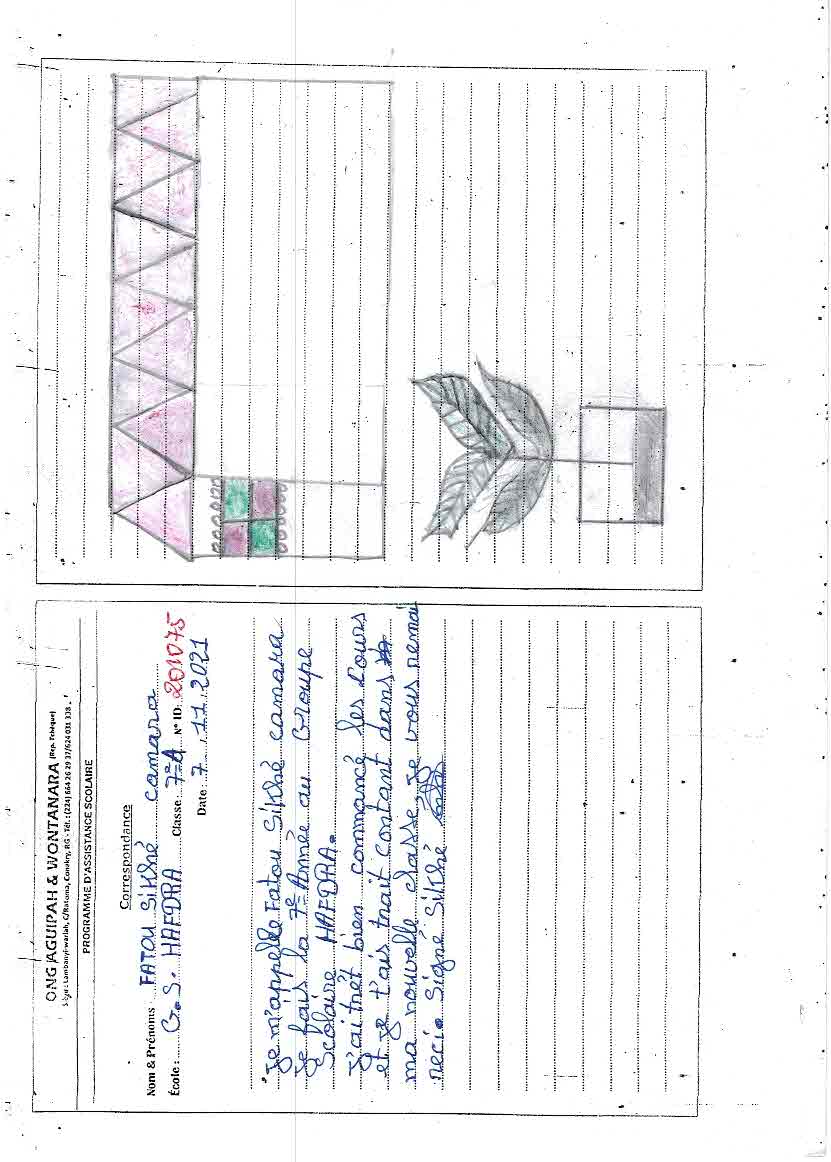 ONG AGUIPAH & WONTANARA (Rep. Tchèque)
PROGRAMME D'ASSISTANCE SCOLAIRE
Correspondance
Nom & Prénoms : FATOU Sikhé camara
École : G.S. HAFDRA Classe : 7eA N° ID: 201075
Date : 7 / 11 / 2021
Je m'appelle Fatou Sikhé camara
Je fais la 7e Année au Groupe
Scolaire HAFDRA.
J'ai trêt bien commancé les Cours
et je t'ais trait contant dans
ma nouvelle classe, Je vous remai
recie Signé Sikhé